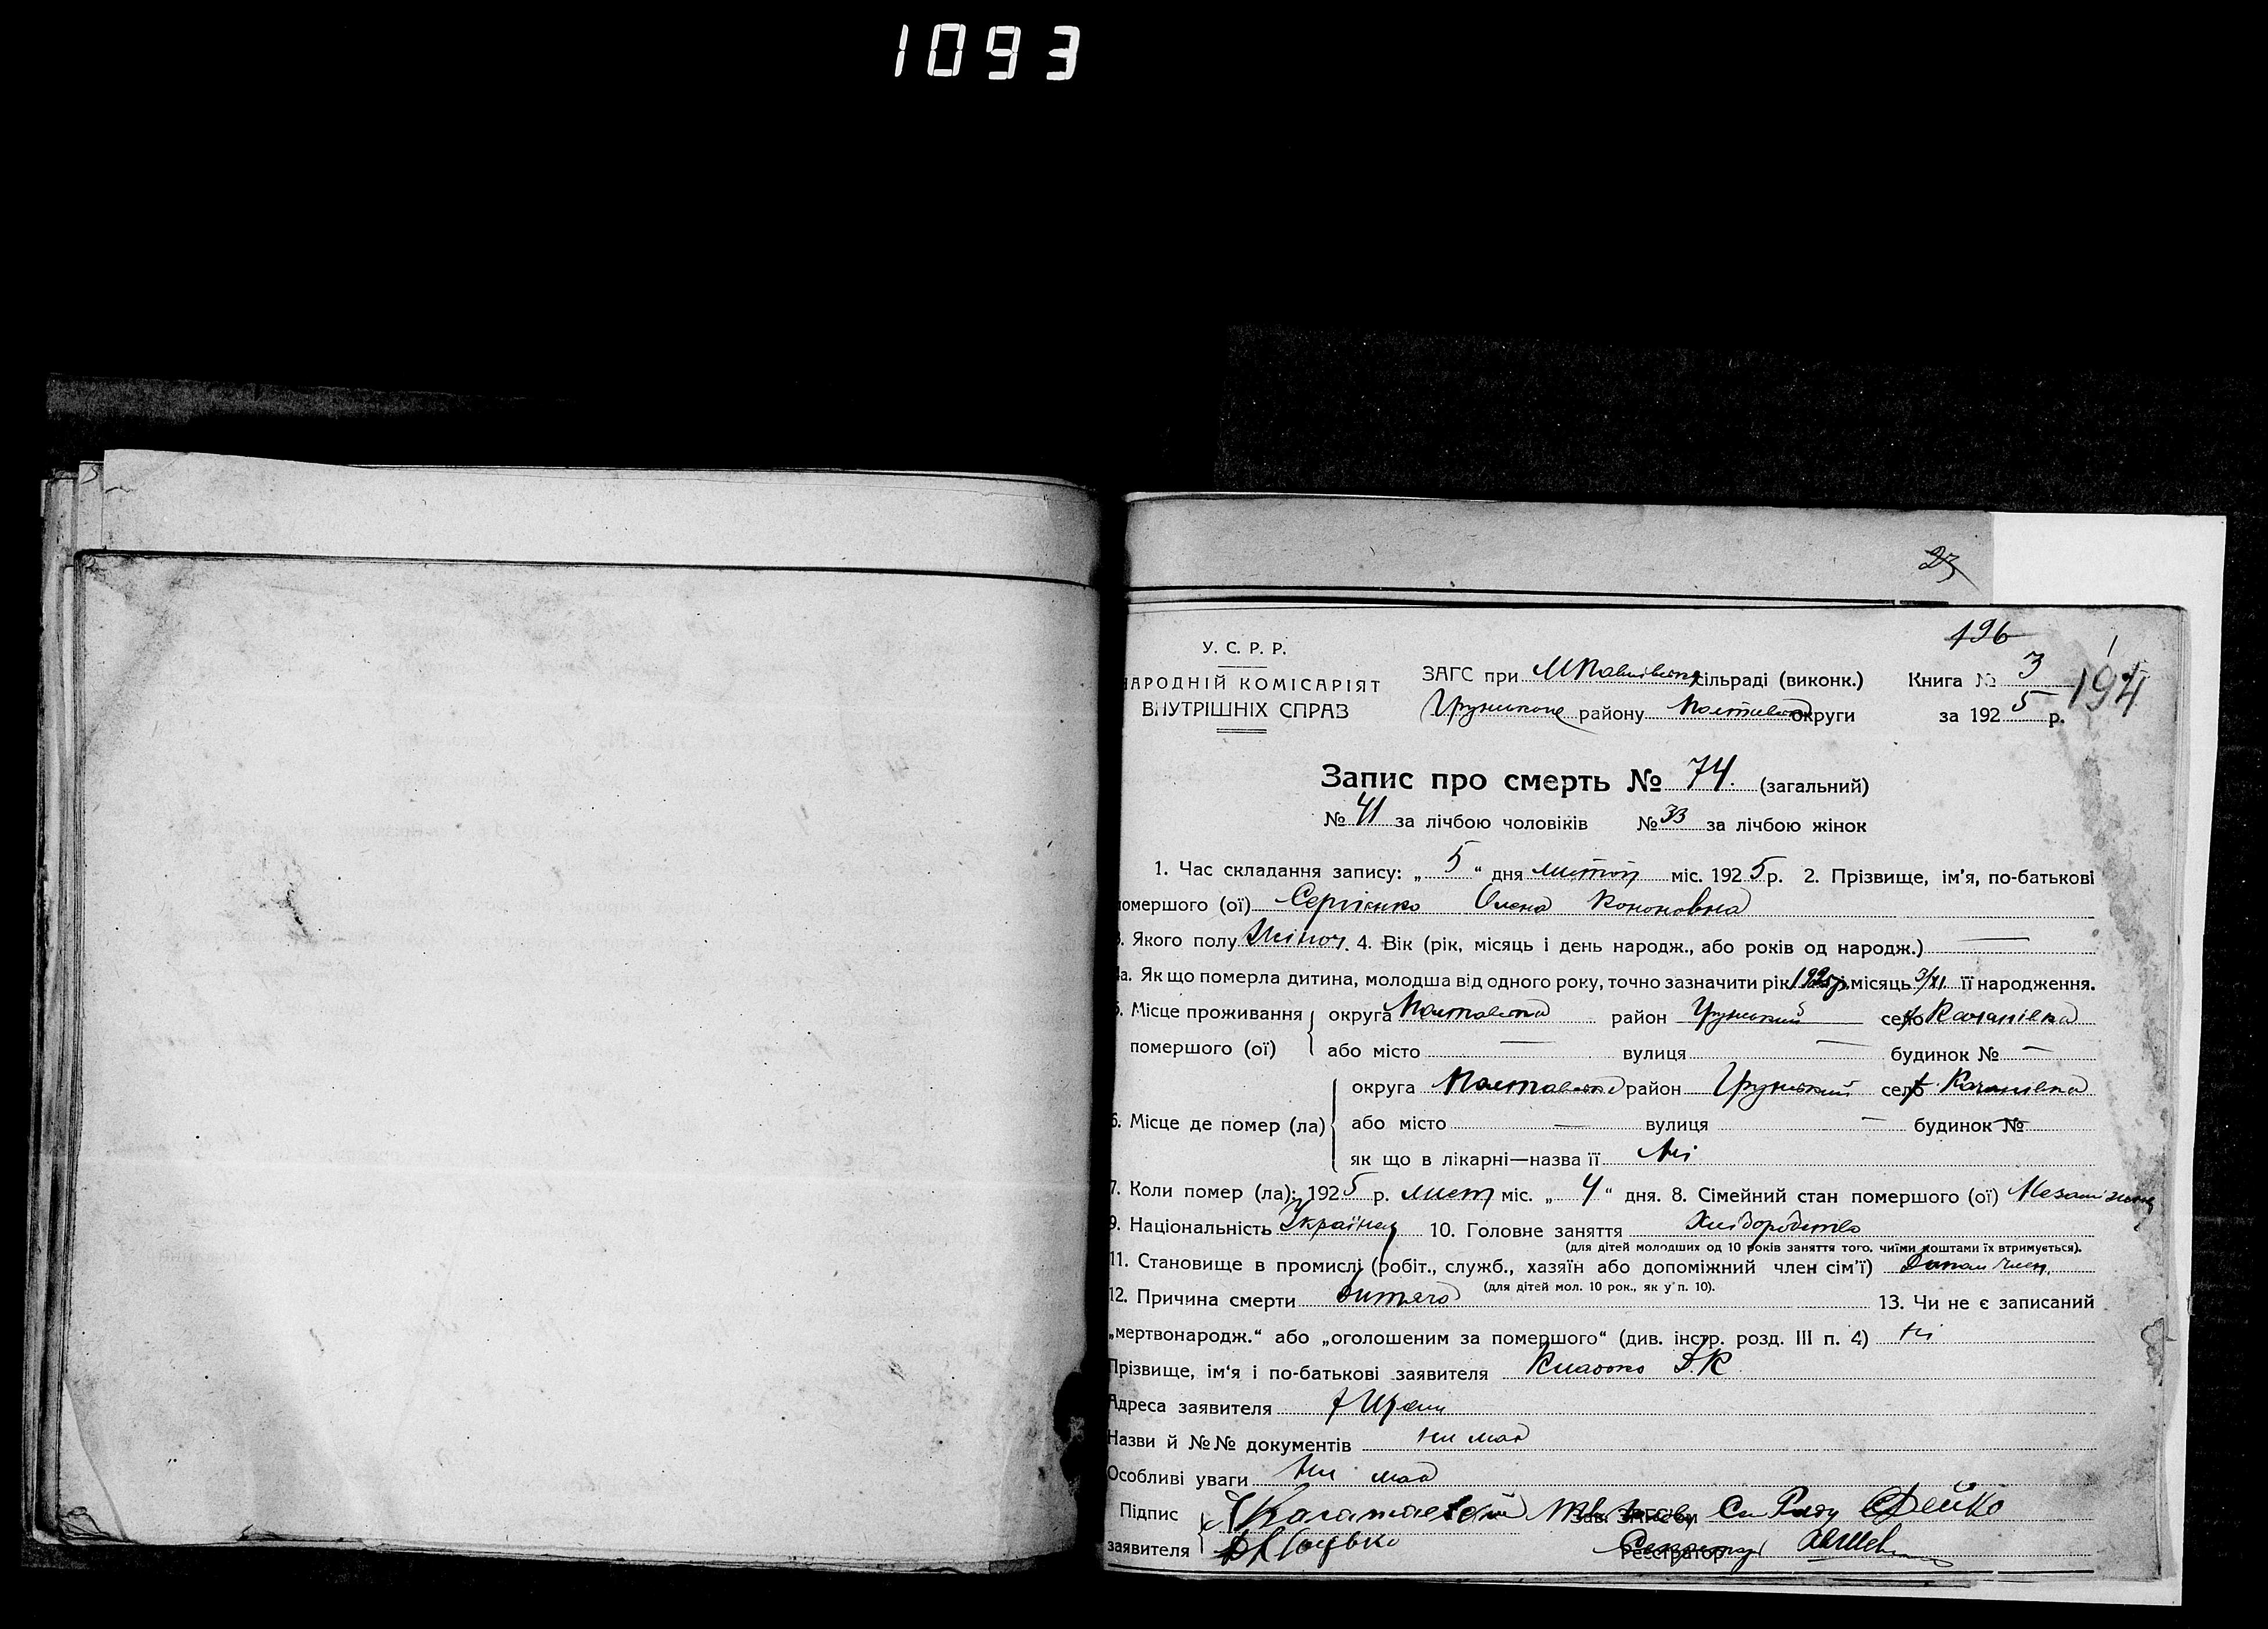 1093
23
196
У. С. Р. Р.
НАРОДНІЙ КОМІСАРІЯТ
ВНУТРІШНІХ СПРАВ
ЗАГС при МПавлівськ сільраді (виконк.)
Грунськоме району Полтавської округи
Книга № 3
за 1925 р.
194
Запис про смерть № 74. (загальний)
№ 41 за лічбою чоловіків № 33 за лічбою жінок
1. Час складання запису: „ 5 “ дня листоп міс. 1925 р. 2. Прізвище, ім'я, по-батькові
помершого (ої) Сергієнко Олена Кононовна
3. Якого полу Жіноч. 4. Вік (рік, місяць і день народж., або років од народж.) —
4а. Як що померла дитина, молодша від одного року, точно зазначити рік 1925р. місяць 3/XI її народження.
5. Місце проживання помершого (ої) округа Полтавська район Грунський село Качанівка
або місто — вулиця — будинок № —
6. Місце де помер (ла) округа Полтавська район Грунський село Качанівка
або місто — вулиця — будинок № —
як що в лікарні—назва її Ні
7. Коли помер (ла): 1925 р. лист міс. „ 4 “ дня. 8. Сімейний стан помершого (ої) Незаміжня
9. Національність Українка 10. Головне заняття Хліборобство
(для дітей молодших од 10 років заняття того, чиїми коштами їх втримується).
11. Становище в промислі (робіт., служб., хазяїн або допоміжний член сім'ї) Допом член
(для дітей мол. 10 рок., як у п. 10).
12. Причина смерти дитяча 13. Чи не є записаний
„мертвонародж.“ або „оголошеним за помершого“ (див. інстр. розд. III п. 4) ні
Прізвище, ім'я і по-батькові заявителя
Адреса заявителя
Назви й №№ документів Не має
Особливі уваги Не має
Підпис заявителя
Зав. ЗАГСом
Реєстратор